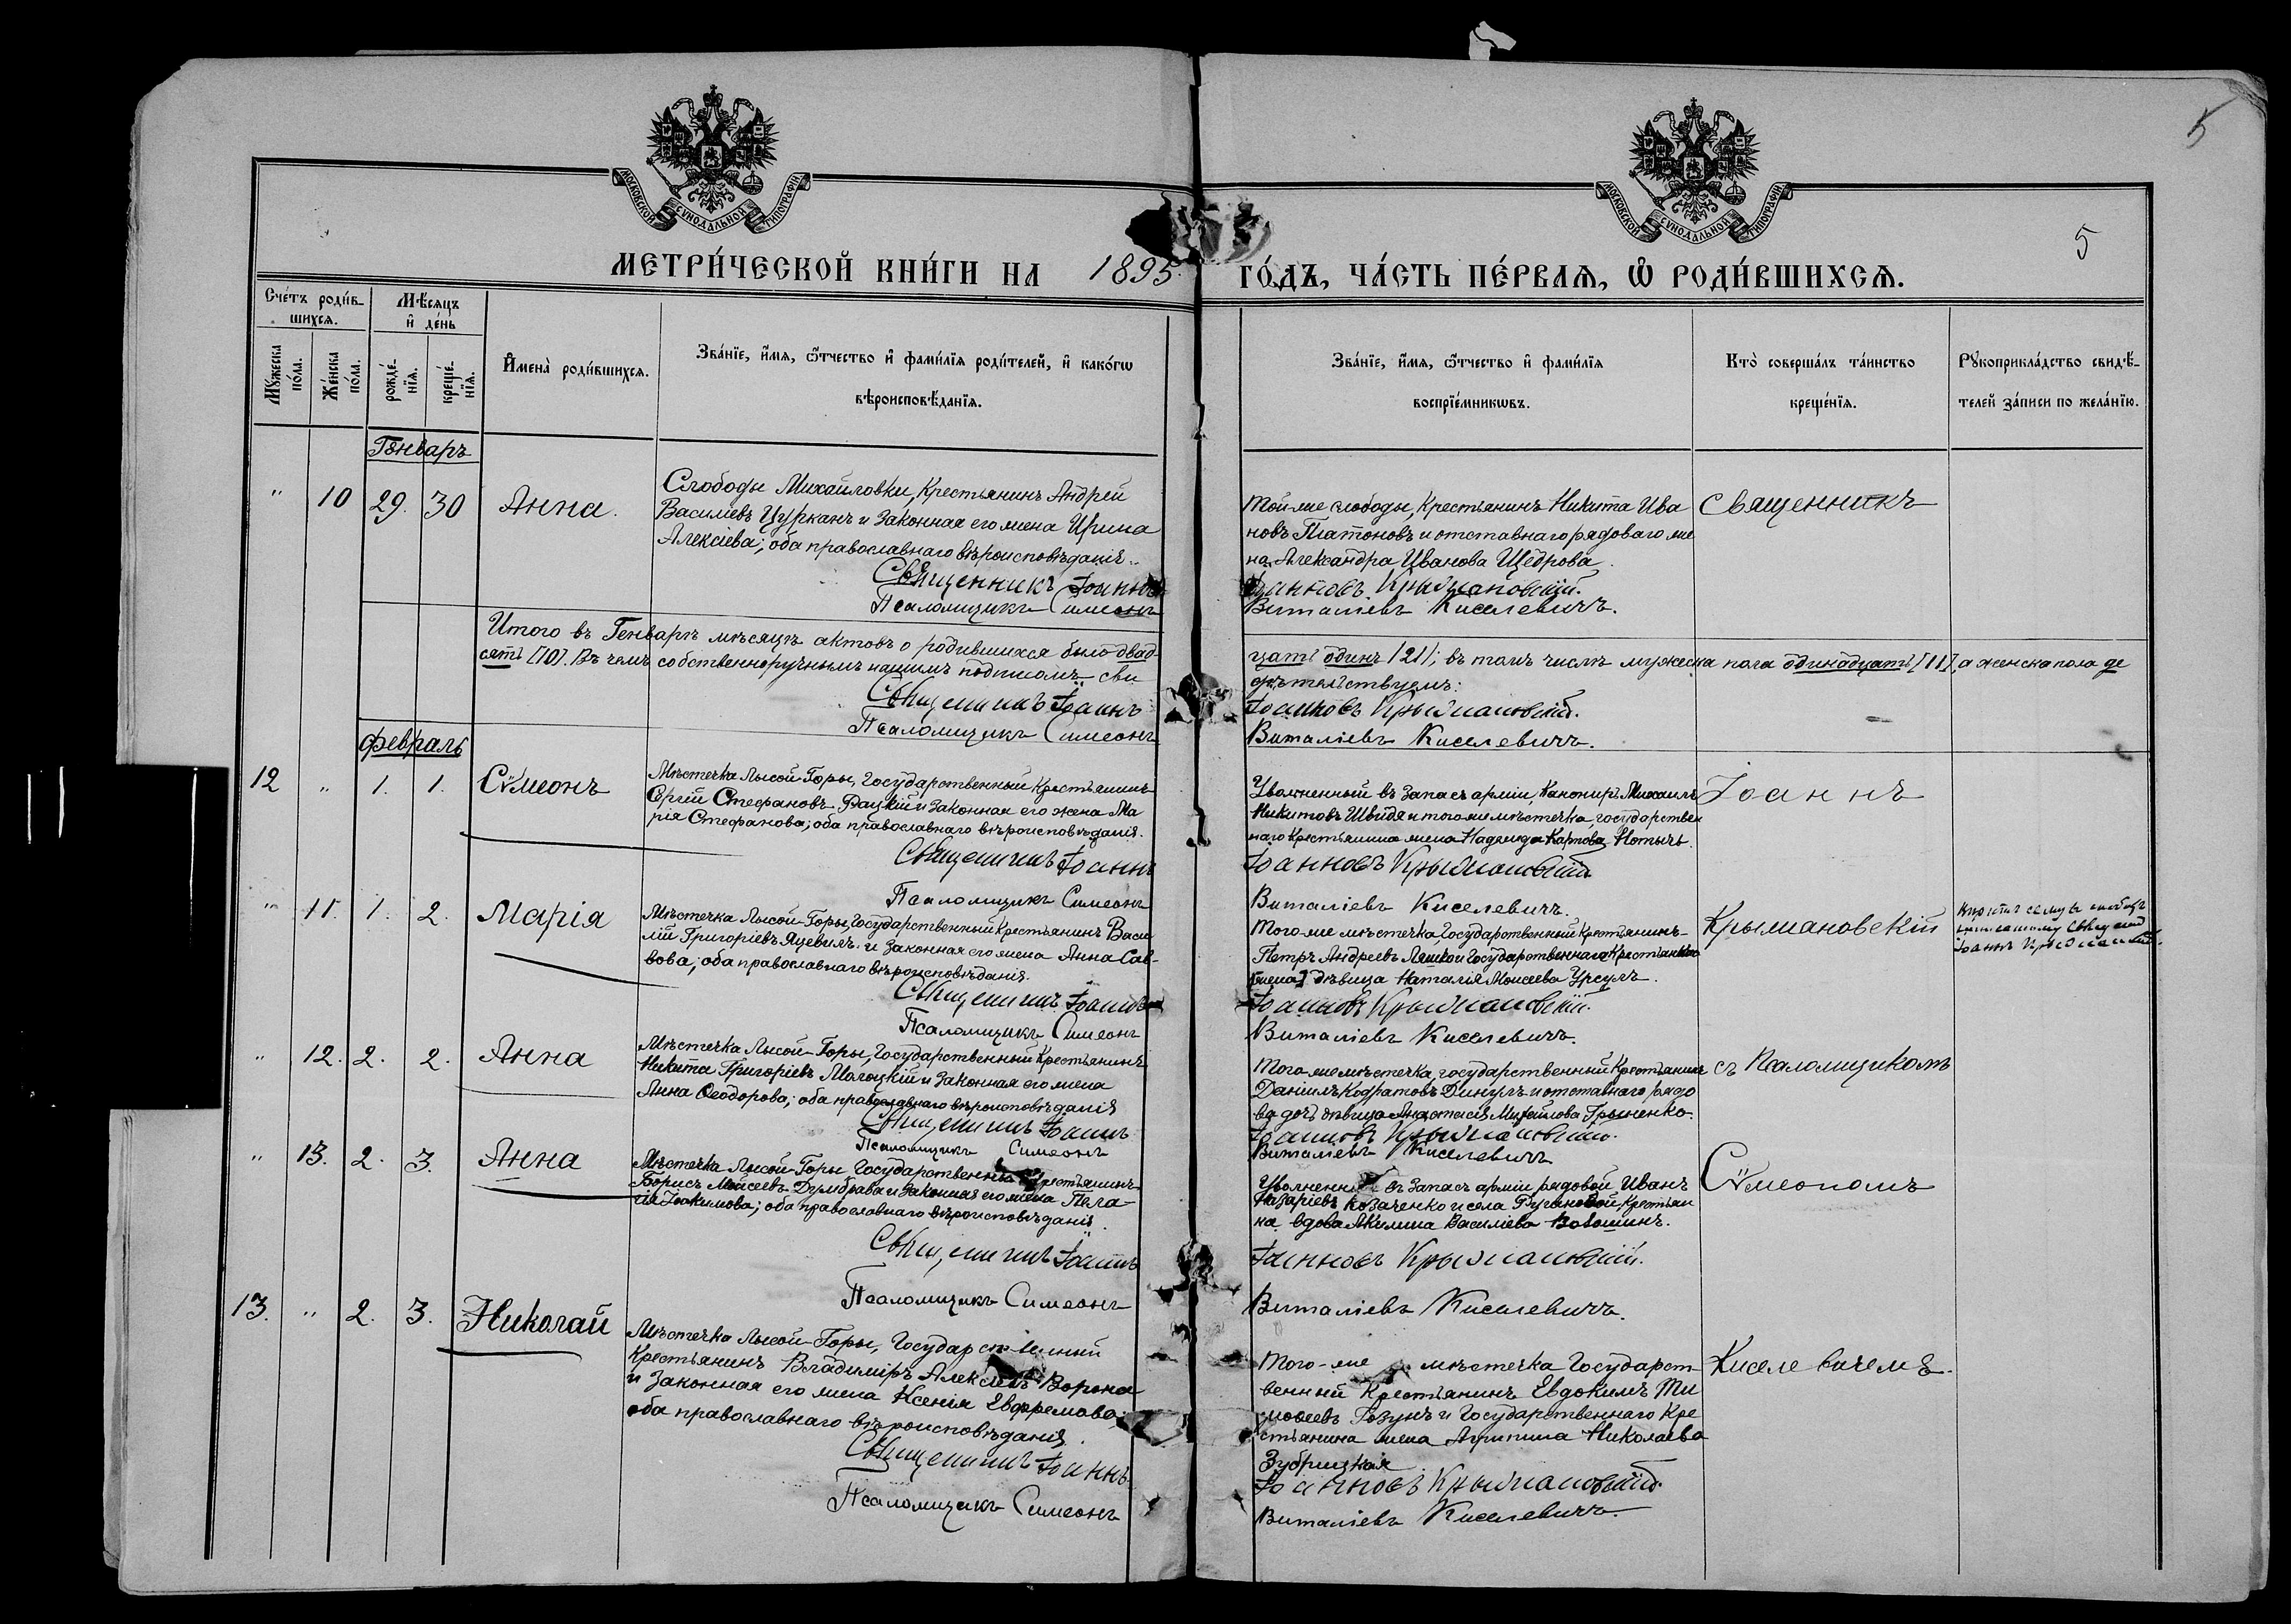 5
МОСКОВСКОЙ СѴНОДАЛЬНОЙ ТИПОГРАФІИ
МОСКОВСКОЙ СѴНОДАЛЬНОЙ ТИПОГРАФІИ
5
МЕТРИ́ЧЕСКОЙ КНИ́ГИ НА 1895
ГО́ДЪ, ЧА́СТЬ ПЕ́РВАѦ, Ѡ РОДИ́ВШИХСѦ.
Сче́тъ роди́в-
шихсѧ.
Мꙋ́жеска по́ла.
Же́нска по́ла.
Мѣ́сѧцъ
и҆ де́нь
рожде́-нїѧ.
креще́-нїѧ.
И҆мена̀ роди́вшихсѧ.
Зва́нїе, и҆́мѧ, ѻ҆́тчество и҆ фами́лїѧ роди́телей, и҆ како́гѡ
вѣроисповѣ́данїѧ.
Зва́нїе, и҆́мѧ, ѻ҆́тчество и҆ фами́лїѧ
воспрїе́мникѡвъ.
Кто̀ соверша́лъ та́инство
креще́нїѧ.
Рꙋкоприкла́дство свидѣ́-
телей за́писи по жела́нїю.
Генварь
" 10 29. 30 Анна.
Слободы Михайловки, Крестьянинъ Андрей
Василіевъ Цурканъ и законная его жена Ирина
Алексіева; оба православнаго вѣроисповѣданія.
Священникъ Іоаннъ
Псаломщикъ Симеонъ
Той-же слободы, Крестьянинъ Никита Ива
новъ Платоновъ и отставнаго рядоваго же
на Александра Иванова Щедрова.
Іоанновъ Крыжановскій.
Виталіевъ Киселевичъ.
Священникъ
Итого въ Генварѣ мѣсяцѣ актовъ о родившихся было двад-
цать одинъ [21]; въ томъ числѣ мужеска пола одинадцать [11], а женска пола де
сять [10]. Въ чемъ собственноручнымъ нашимъ подписомъ сви
дѣтельствуемъ:
Священникъ Іоаннъ
Іоанновъ Крыжановскій.
Псаломщикъ Симеонъ
Виталіевъ Киселевичъ.
Февраль
12 " 1. 1. Сѵмеонъ
Мѣстечка Лысой-Горы, Государственный Крестьянинъ
Сергій Стефановъ Рацкій и законная его жена Ма
рія Стефанова; оба православнаго вѣроисповѣданія.
Священникъ Іоаннъ
Псаломщикъ Симеонъ
Уволненный въ запасъ арміи, Канониръ Михаилъ
Никитовъ Швыдя и того-же мѣстечка, государствен
наго Крестьянина жена Надежда Карпова Нотычъ.
Іоанновъ Крыжановскій
Виталіевъ Киселевичъ.
Іоаннъ
" 11. 1. 2. Марія
Мѣстечка Лысой-Горы, Государственный Крестьянинъ Васи
лій Григоріевъ Яцевилъ и законная его жена Анна Сав-
вова; оба православнаго вѣроисповѣданія.
Священникъ Іоаннъ
Псаломщикъ Симеонъ
Того-же мѣстечка, Государственный Крестьянинъ
Петръ Андреевъ Ляшко и Государственнаго Крестьянина
[жена] дѣвица Наталія Моисеева Урсулъ.
Іоанновъ Крыжановскій.
Виталіевъ Киселевичъ.
Крыжановскій
Іоаннъ Крыжановскій.
" 12. 2. 2. Анна
Мѣстечка Лысой-Горы, Государственный Крестьянинъ
Никита Григоріевъ Магоцкій и законная его жена
Анна Ѳеодорова; оба православнаго вѣроисповѣданія
Священникъ Іоаннъ
Псаломщикъ Симеонъ
Того-же мѣстечка, государственный Крестьянинъ
Даніилъ Кодратовъ Дингулъ и отставнаго рядо
ва дочь дѣвица Анастасія Михайлова Грыненко.
Іоанновъ Крыжановскій.
Виталіевъ Киселевичъ
съ Псаломщикомъ
" 13. 2. 3. Анна
Мѣстечка Лысой-Горы Государственный Крестьянинъ
Борисъ Мойсеевъ Думбрава и законная его жена Пела-
гія Іоакимова; оба православнаго вѣроисповѣданія.
Священникъ Іоаннъ
Псаломщикъ Симеонъ
Уволненный въ запасъ арміи рядовой Иванъ
Назаріевъ Козаченко и села Ругановой, Крестьян
ка вдова Акилина Василіева Волошинъ.
Іоанновъ Крыжановскій.
Виталіевъ Киселевичъ.
Сѵмеономъ
13. " 2. 3. Николай
Мѣстечка Лысой-Горы, Государственный
Крестьянинъ Владиміръ Алексіевъ Ворона
и законная его жена Ксенія Евфремова;
оба православнаго вѣроисповѣданія.
Священникъ Іоаннъ
Псаломщикъ Симеонъ
Того-же мѣстечка Государст
венный Крестьянинъ Евдокимъ Ти
моѳеевъ Гозунъ и Государственнаго Кре
стьянина жена Агрипина Николаева
Зубрицкая
Іоанновъ Крыжановскій.
Виталіевъ Киселевичъ.
Киселевичемъ.